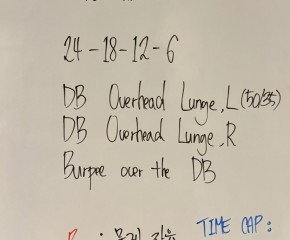 24-18-12-6
DB Overhead Lunge, L (50/35)
DB Overhead Lunge, R
Burpee over the DB
TIME CAP: